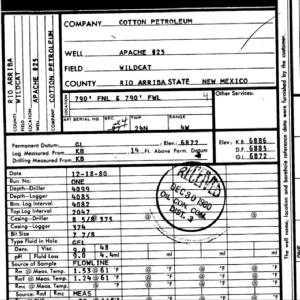 COMPANY COTTON PETROLEUM
WELL APACHE #25
FIELD WILDCAT
COUNTY RIO ARRIBA STATE NEW MEXICO
LOCATION 790' FNL & 790' FWL
Other Services:
API SERIAL NO. SEC. TWP. RANGE
24N 4W
Permanent Datum: GL Elev.: 6872
Log Measured From KB 14 Ft. Above Perm. Datum
Drilling Measured From KB
Elev.: K.B. 6886
D.F. 6885
G.L. 6872
Date 12-18-80
Run No. ONE
Depth-Driller 4099
Depth-Logger 4085
Btm. Log Interval 4082
Top Log Interval 2047
Casing-Driller 8 5/8 @ 375
Casing-Logger 374
Bit Size 7 7/8
Type Fluid in Hole GEL
Dens. Visc. 9.0 48
pH Fluid Loss 9.0 4.4 ml
Source of Sample FLOWLINE
Rm @ Meas. Temp. 1.53 @ 61 °F
Rmf @ Meas. Temp. 1.24 @ 61 °F
Source: Rmf Rmc MEAS
DEC 30 1980
OIL CON. COM.
DIST. 3
COMPANY COTTON PETROLEUM
WELL APACHE #25
FIELD WILDCAT
LOCATION
COUNTY RIO ARRIBA
The well name, location and borehole reference data were furnished by the customer.